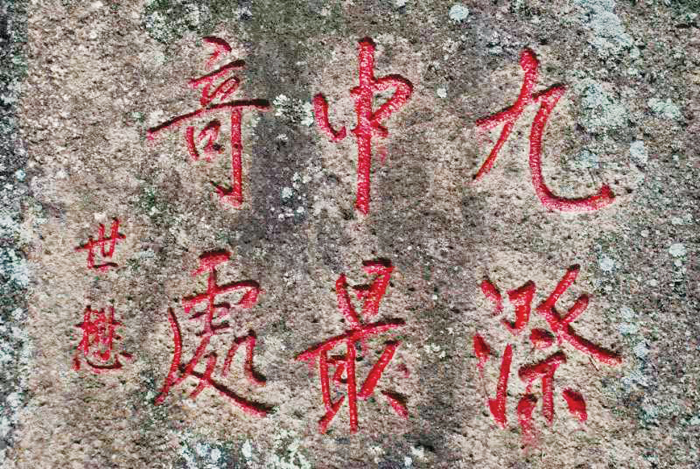 九漈
中最
奇處
世懋